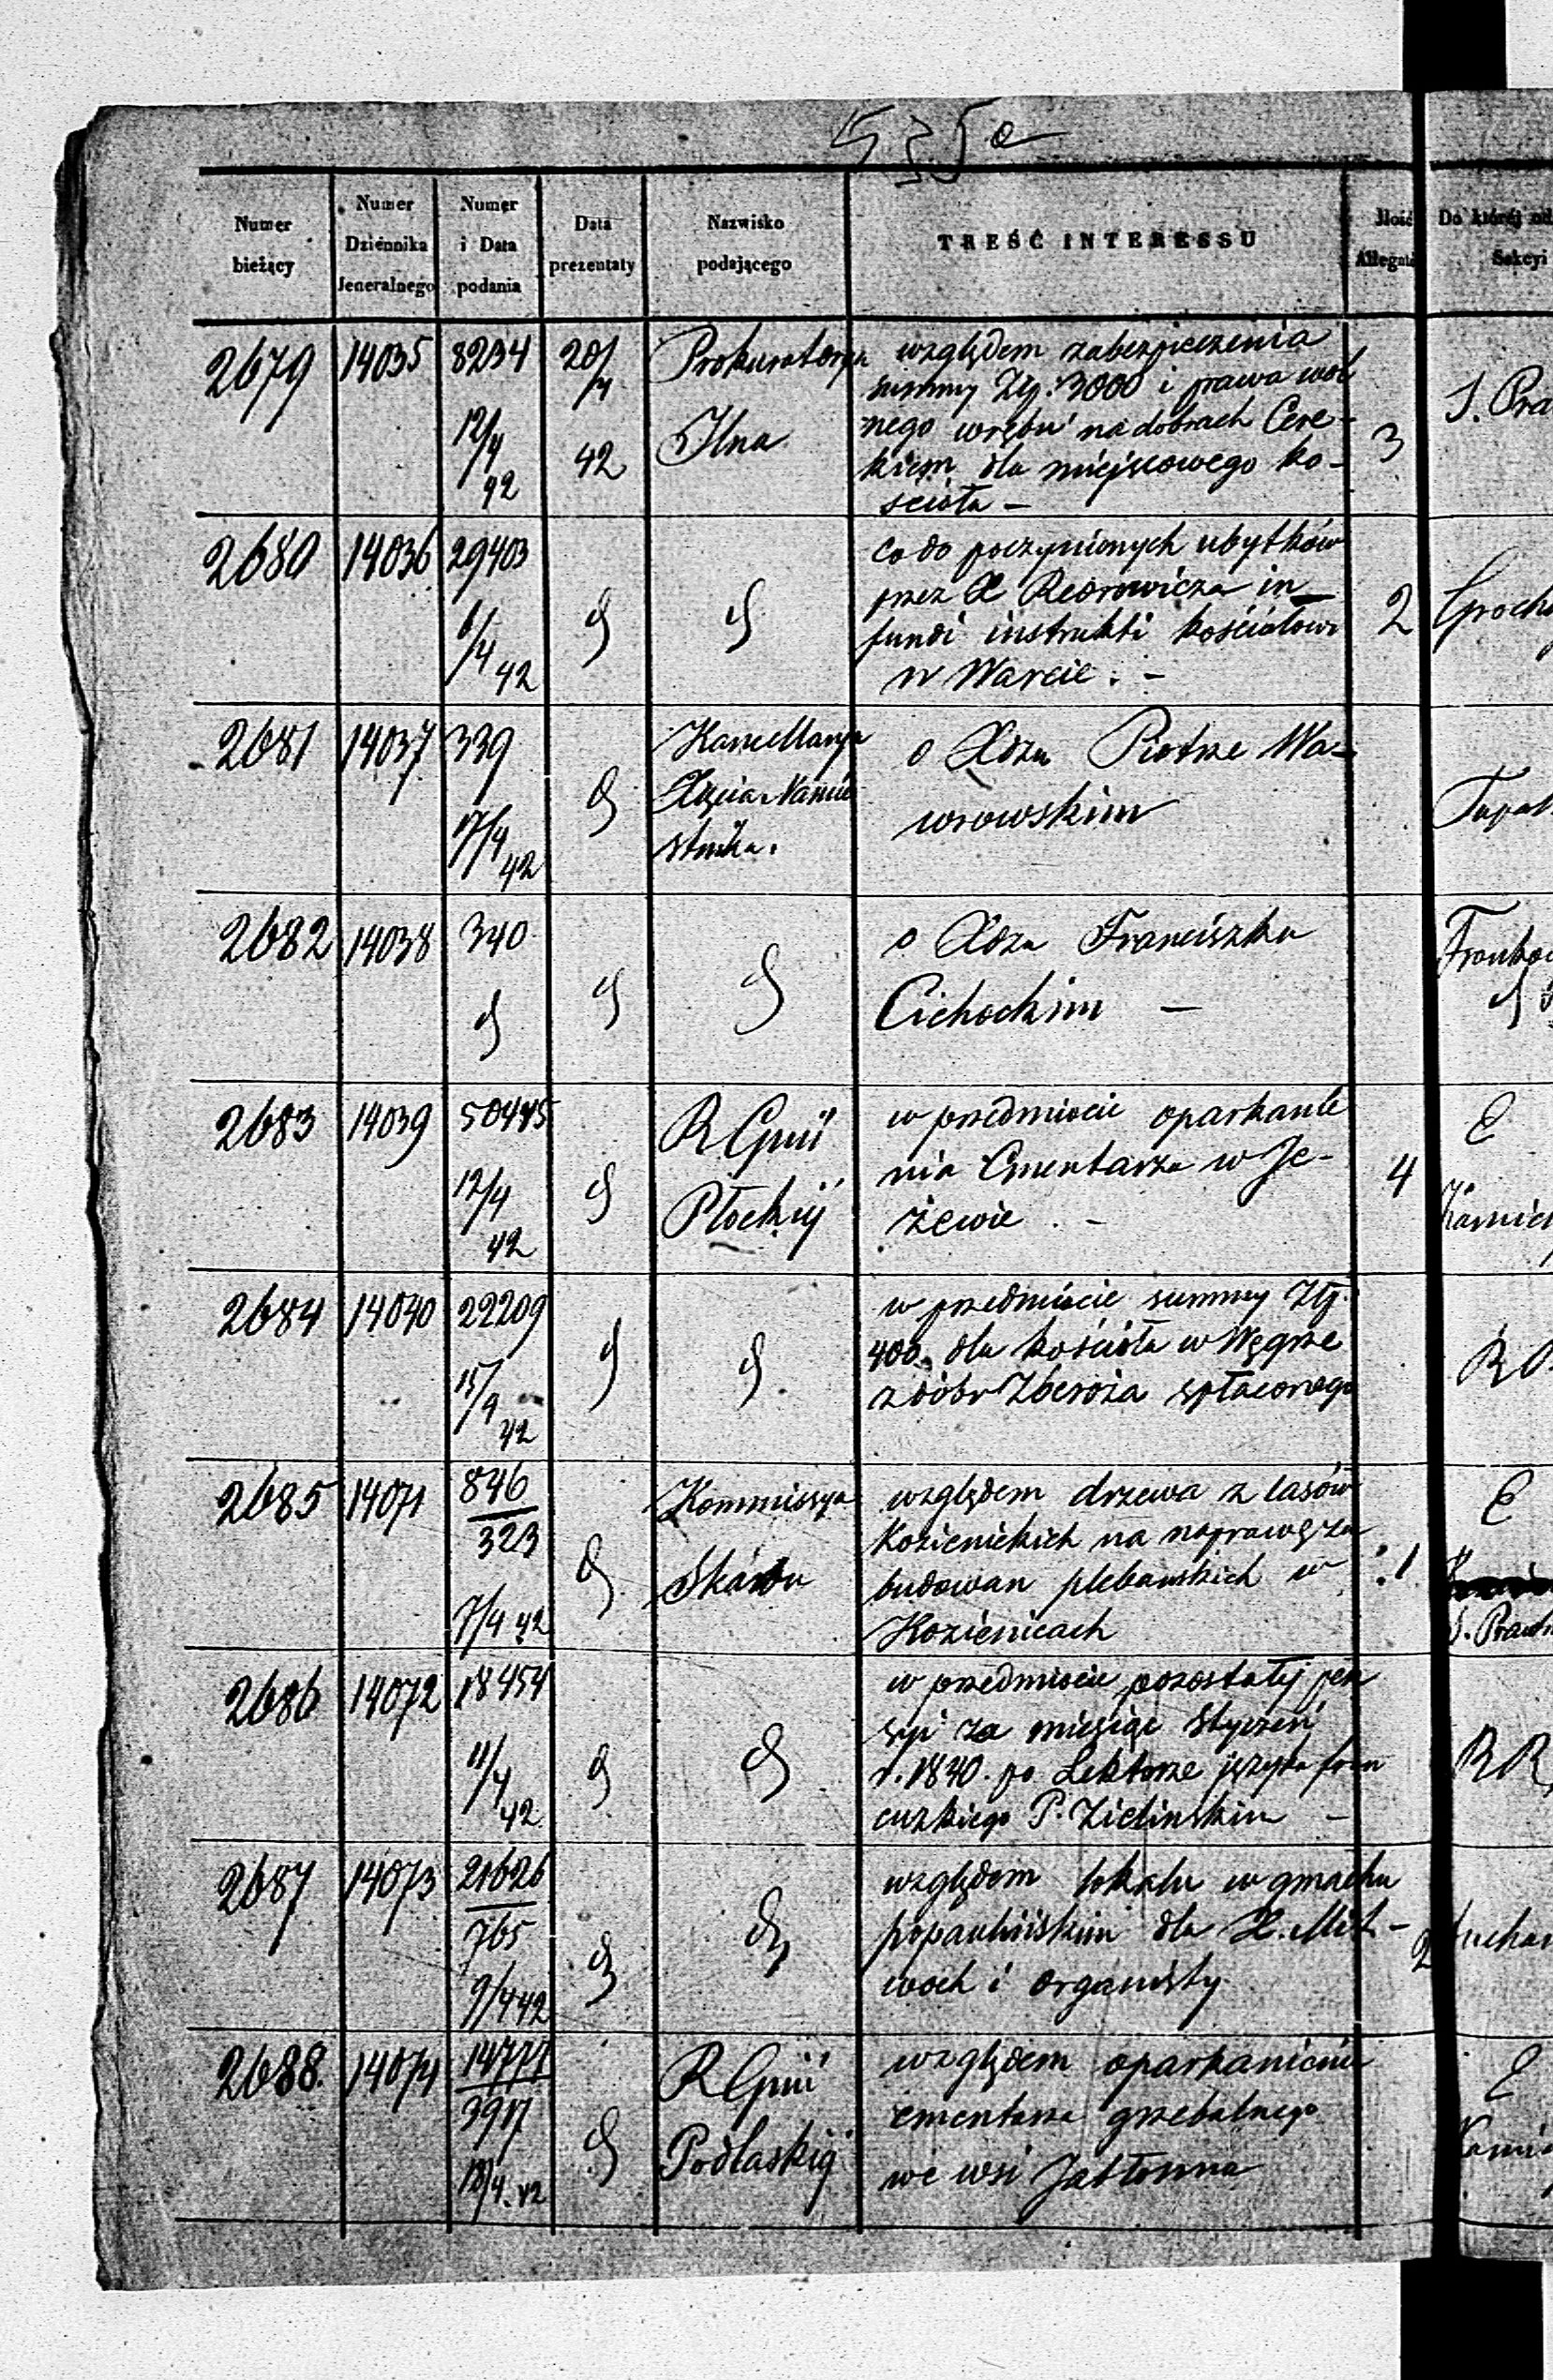 535
Numer bieżący
Numer Dziennika Jeneralnego
Numer i Data podania
Data prezentaty
Nazwisko podającego
TREŚĆ INTERESSU
Ilość
Do której
Sekcyi
2679 14035 8234 12/4 42 20/4 42 Prokuratorya
względem zabezpieczenia
summy Złp. 3000 i prawa wol
nego wrębu na dobrach Cere-
kiem dla miejscowego ko-
ścioła – 3
2680 14036 29403 6/4 42
co do poczynionych ubytków
przez X in
fundi instrukti kościołowi
w Warcie. – 2
2681 14037 339 17/4 42 Kancellarya
Xięcia Namie
stnika.
o Xdzu Piotrze Wa-
wrowskim
2682 14038 340
o Xdzu Franciszku
Cichockim –
2683 14039 50445 12/4 42 R Gnii
Płockiij
w przedmiocie oparkanie
nia Cmentarza w Je-
żewie. – 4 E
2684 14040 22209 15/4 42
w przedmiocie summy Złp.
400. dla kościoła w Węgrze
z dóbr Zberoża spłaconego
2685 14071 846/323 7/4 42 Kommissya
Skarbu
względem drzewa z lasów
Kozienickich na naprawę za
budowan plebańskich w
Kozienicach 1 E
2686 14072 18454 11/4 42
w przedmiocie pozostałej pen
syi za miesiąc Styczeń
r. 1840. po Lektorze języka fran
cuzkiego P. Zielinskim – RR
2687 14073 21626/765 9/4 42
względem lokalu w gmachu
popaulińskim dla X. Mist-
woch i organisty 2
2688. 14074 14777/3917 18/4. 42 R Gnii
Podlaskiij
względem oparkanienia
cmentarza grzebalnego
we wsi Jabłonna E